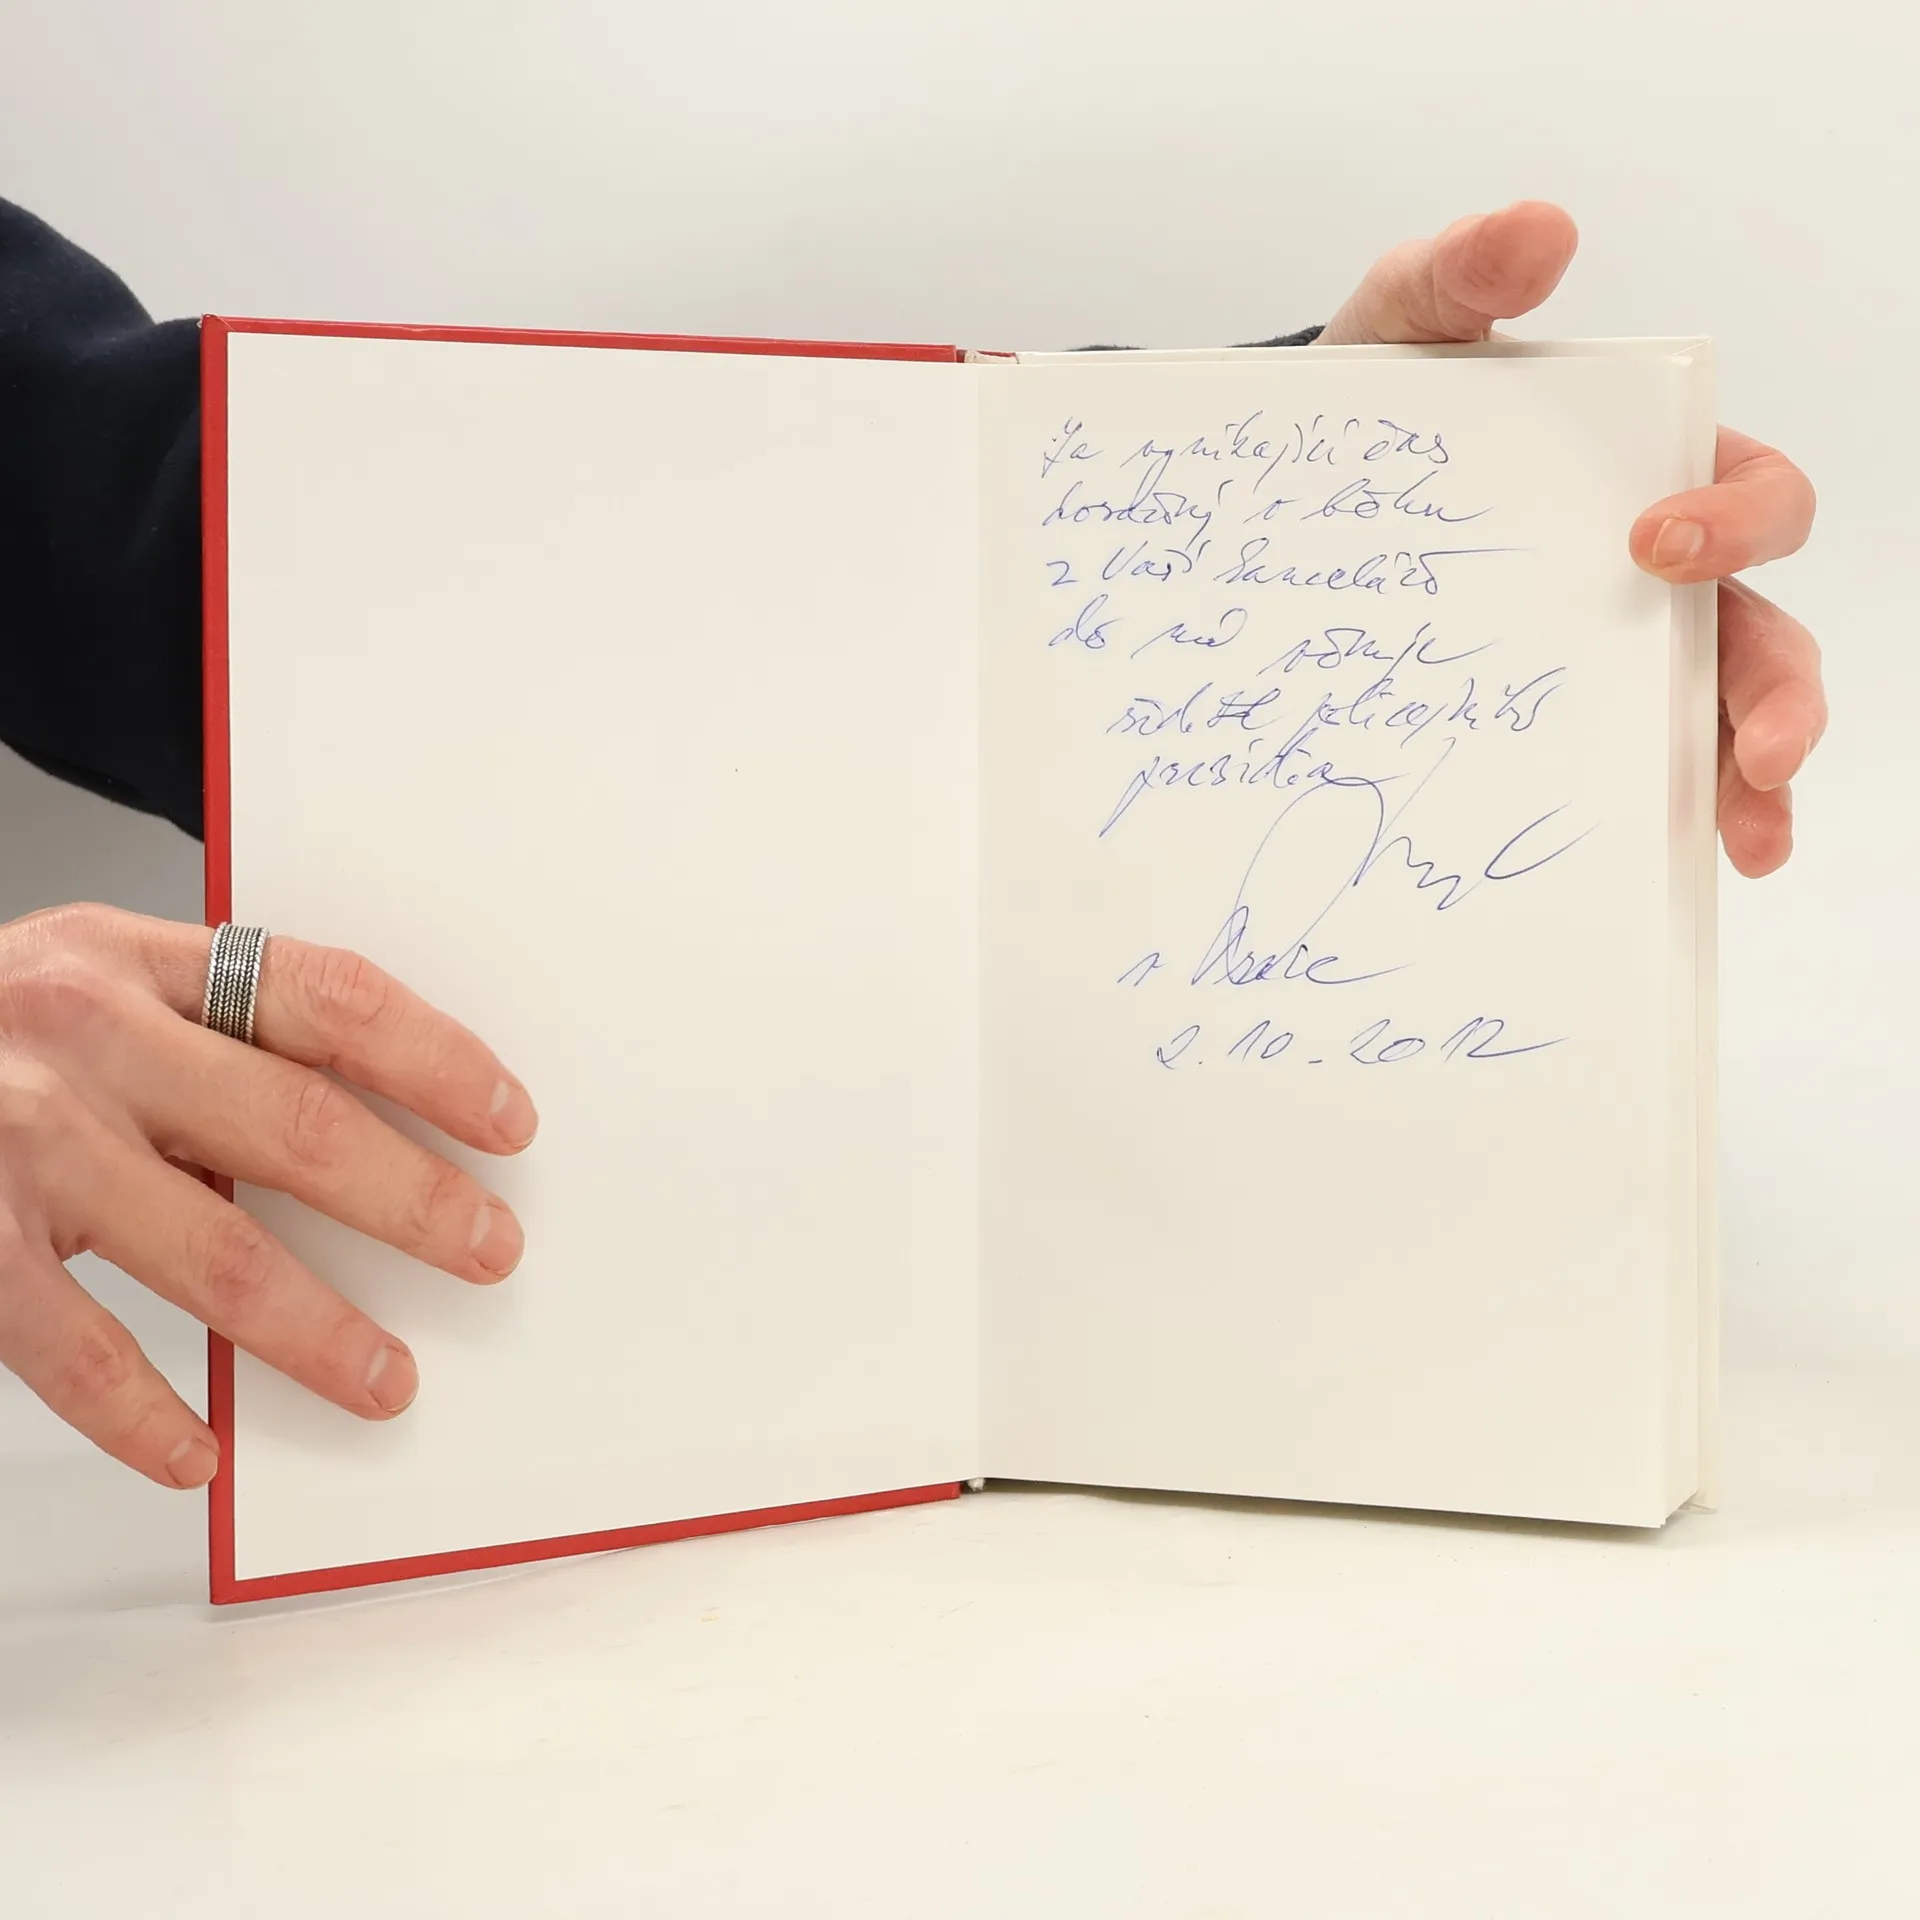 Za vynikající čas
dosažený v běhu
z Vaší kanceláře
do mé věnuje
ředitel policejního
prezidia
v Praze
2.10.2012